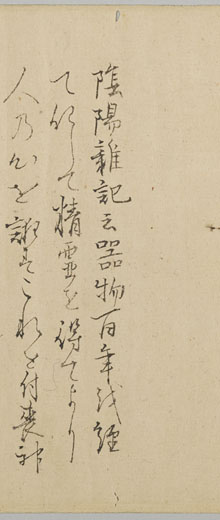 陰陽雑記云器物百年を経
て化して精霊を得てより
人の心を誑すこれを付喪神